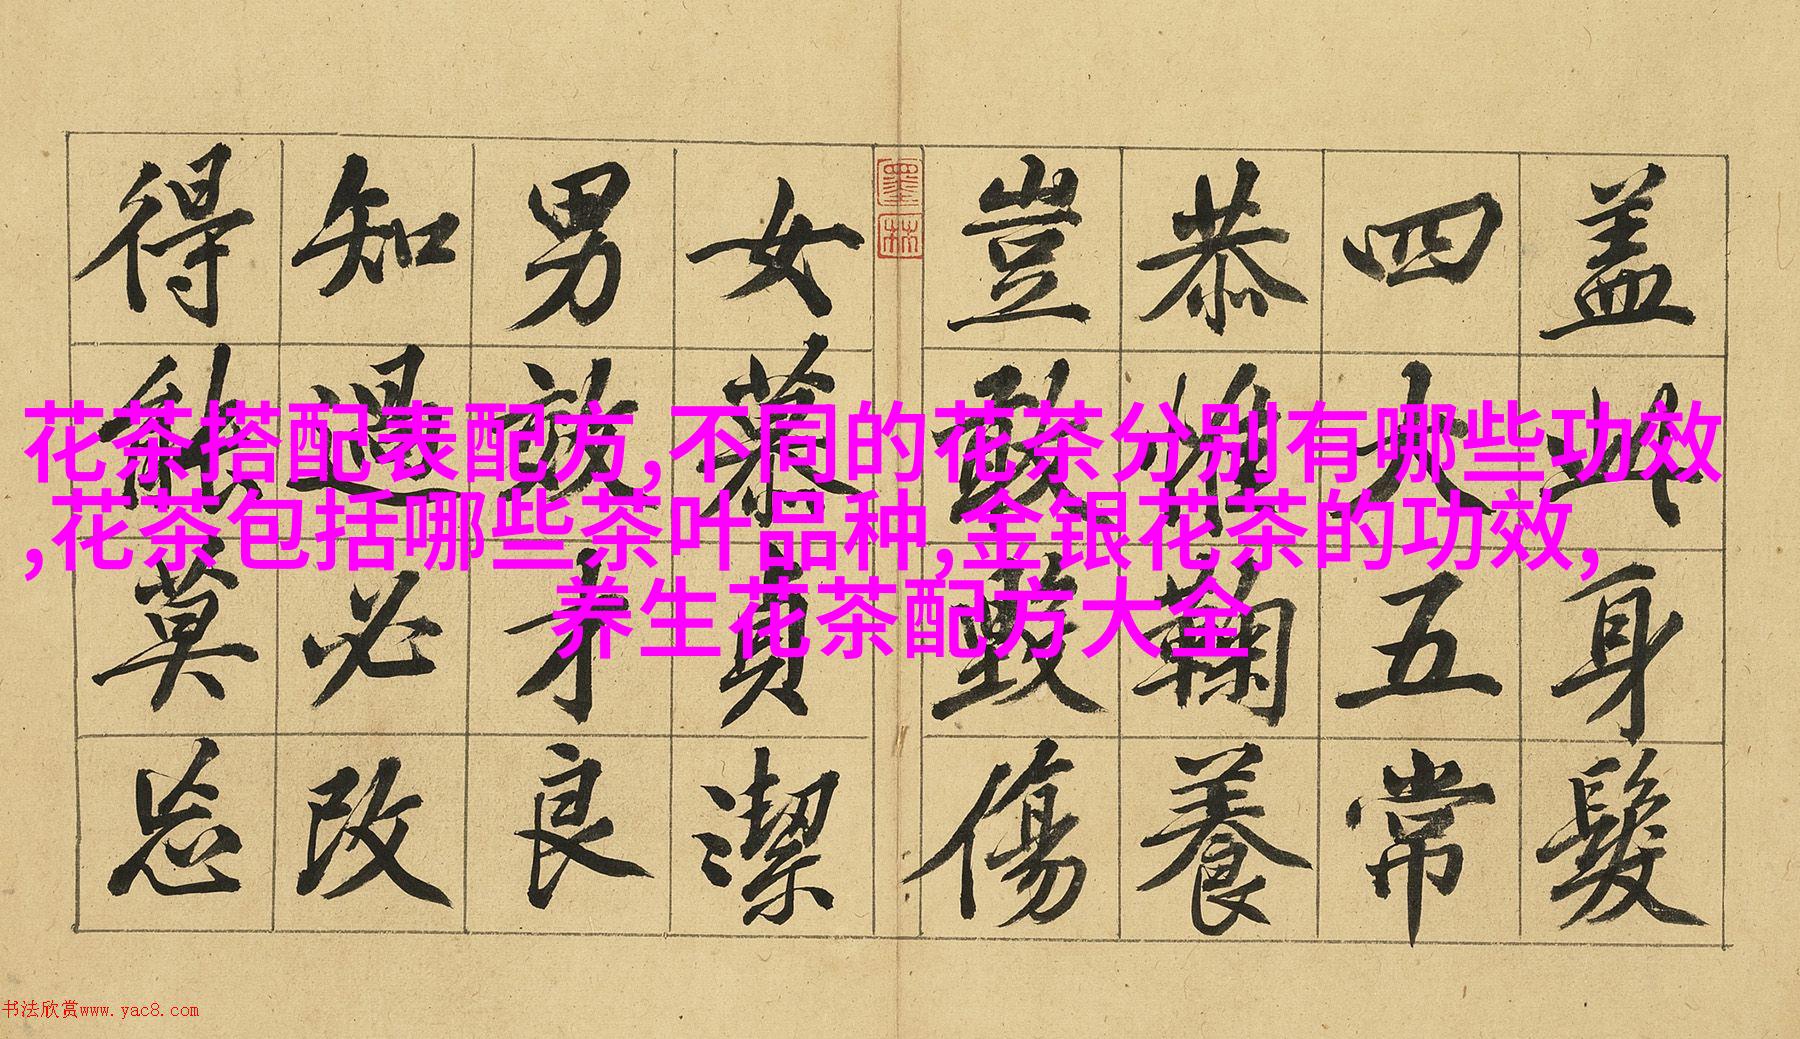 花茶搭配表配方,不同的花茶分别有哪些功效
,花茶包括哪些茶叶品种,金银花茶的功效,
养生花茶配方大全
盖此身髮
四大五常
恭惟鞠養
豈敢毀傷
女慕貞潔
男效才良
知過必改
得能莫忘
墨林
书法欣赏www.yac8.com